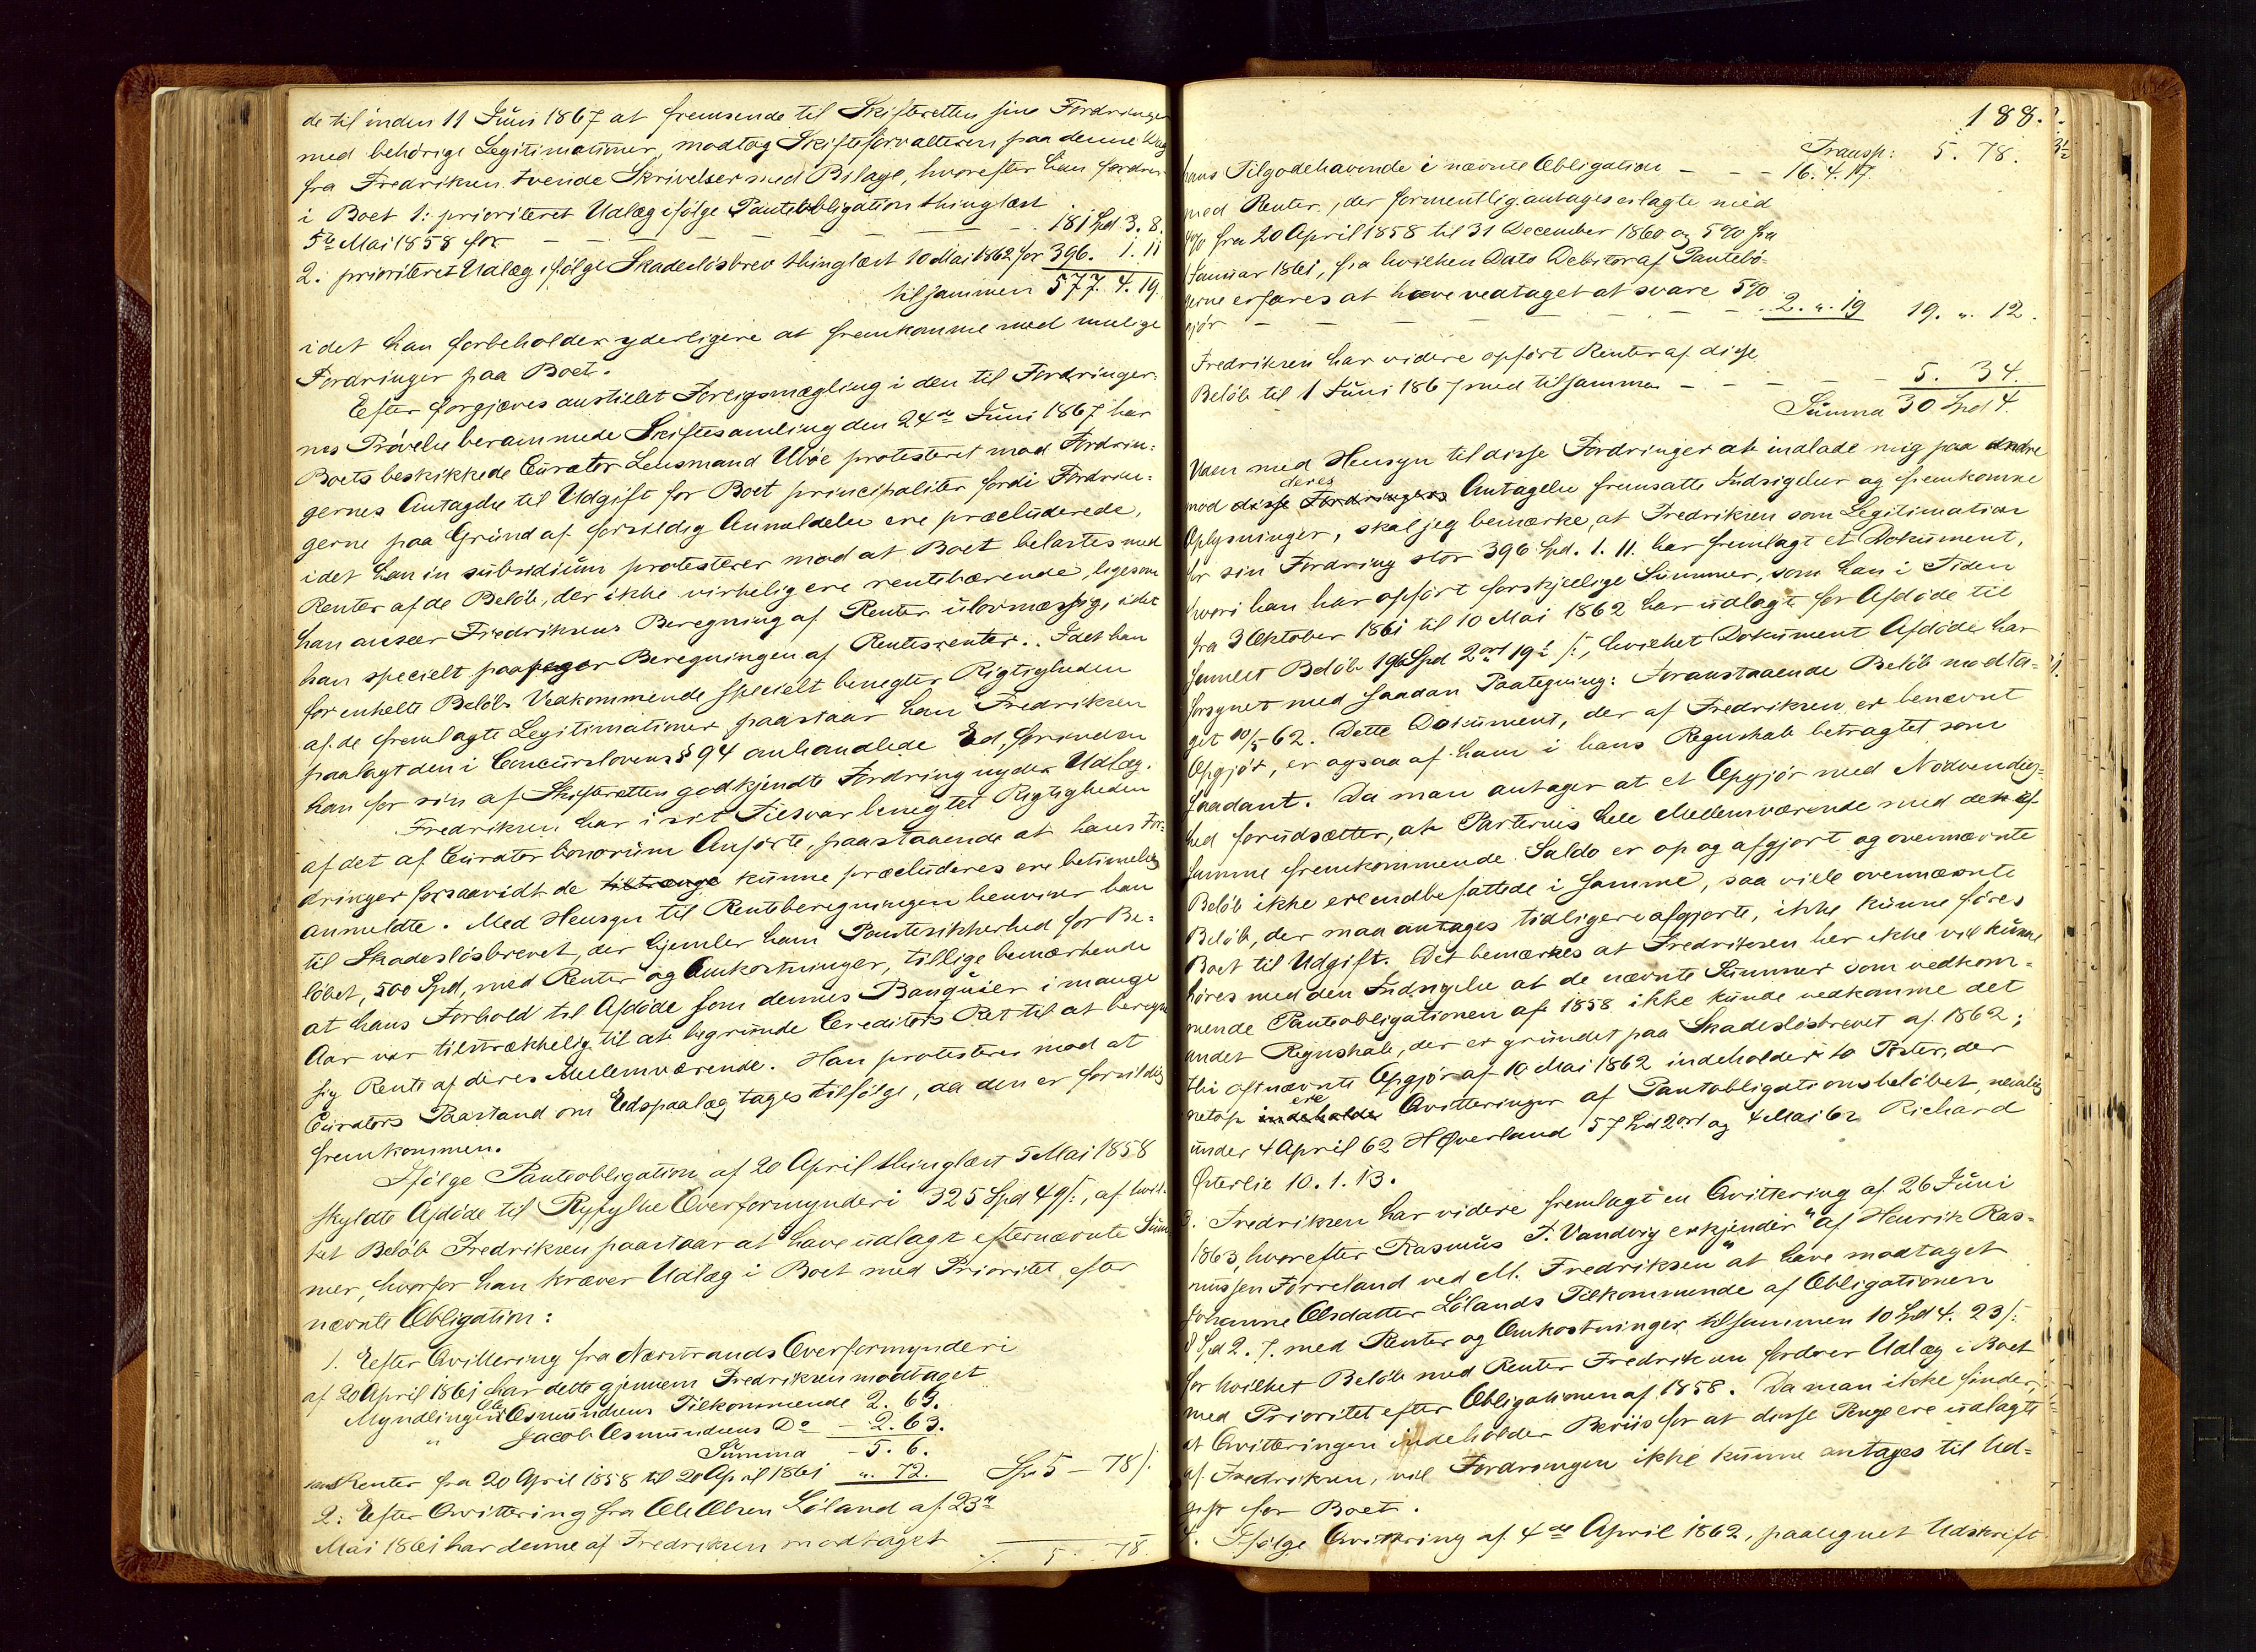 de til inden 11 Juni 1867 at fremsende til Skifteretten sine Fordringer
med behörige Legitimationer, modtog Skifteforvalteren paa denne Dag
fra Fredriksen tvende Skrivelser med Bilage, hvorefter han fordrer
i Boet 1: prioriteret Udlæg ifölge Panteobligation thinglæst
5te Mai 1858 for — — — — — — 181 Spd 3. 8.
2. prioriteret Udlæg ifölge Skadeslösbrev thinglæst 10 Mai 1862 for 396. 1. 11
tilsammen 577. 4. 19.
idet han forbeholder yderligere at fremkomme med mulige
Fordringer paa Boet.
Efter forgjæves anstillet Forligsmægling i den til Fordringer-
nes Prövelse berammede Skiftesamling den 24de Juni 1867 har
Boets beskikkede Curator Lensmand Ubøe protesteret mod Fordrin-
gernes Antagelse til Udgift for Boet principaliter fordi Fordrin-
gerne paa Grund af forsildig Anmeldelse ere præcluderede,
idet han in subsidium protesterer mod at Boet belastes med
Renter af de Belöb, der ikke virkelig ere rentebærende, ligesom
han anseer Fredriksens Beregning af Renter ulovmæssig, idet
han specielt paapeger Beregningen af Rentesrenter. Idet han
for enkelte Belöbs Vedkommende specielt benegter Rigtigheden
af de fremlagte Legitimationer paastaar han Fredriksen
paalagt den i Concurslovens § 94 omhandlede Ed, forinden
han for sin af Skifteretten godkjendte Fordring nyder Udlæg.
Fredriksen har i sit Tilsvar benegtet Rigtigheden
af det af Curator bonorum Anförte, paastaaende at hans For-
dringer forsaavidt de tiltrænge kunne præcluderes ere betimelig
anmeldte. Med Hensyn til Renteberegningen henviser han
til Skadeslösbrevet, der hjemler ham Pantesikkerhed for Be-
löbet, 500 Spd, med Renter og Omkostninger, tillige bemærkende
at hans Forhold til Afdöde som dennes Banquier i mange
Aar var tilstrækkelig til at begrunde Creditors Ret til at beregne
sig Rente af deres Mellemværende. Han protesterer mod at
Curators Paastand om Edspaalæg tages tilfölge, da den er forsildig
fremkommen.
Ifölge Panteobligation af 20 April thinglæst 5 Mai 1858
skyldte Afdöde til Ryfylke Overformynderi 325 Spd 49 s:, af hvil-
ket Belöb Fredriksen paastaar at have udlagt efternævnte Sum
mer, hvorfor han kræver Udlæg i Boet med Prioritet efter
nævnte Obligation:
1. Efter Qvittering fra Nærstrands Overformynderi
af 20 April 1861 har dette gjennem Fredriksen modtaget
Myndlingen Ole Osmundsens Tilkommende 2. 63.
" Jacob Osmundsens Do — 2. 63.
Summa — 5. 6.
samt Renter fra 20 April 1858 til 20 April 1861 ". 72. Spd 5 — 78 s:
2: Efter Qvittering fra Ole Olsen Løland af 23de
Mai 1861 har denne af Fredriksen modtaget
5. 78.
188.
Transp: 5. 78.
hans Tilgodehavende i nævnte Obligation — — — 16. 4. 17.
med Renter, der formentlig antages erlagte med
4% fra 20 April 1858 til 31 December 1860 og 5% fra
1 Januar 1861, fra hvilken Dato Debitor af Pantebö-
gerne erfares at have vedtaget at svare 5%
gjör — — — — — — 2. ". 19 19. ". 12.
Fredriksen har videre opfört Renter af disse
Belöb til 1 Juni 1867 med tilsammen — — — — 5. 34.
Summa 30 Spd 4.
Uden med Hensyn til disse Fordringer at indlade mig paa andre
mod disse Fordringers deres Antagelse fremsatte Indsigelser og fremkomne
Oplysninger, skal jeg bemærke, at Fredriksen som Legitimation
for sin Fordring stor 396 Spd. 1. 11. har fremlagt et Dokument,
hvori han har opfört forskjellige Summer, som han i Tiden
fra 3 Oktober 1861 til 10 Mai 1862 har udlagt for Afdöde til
samlet Belöb 196 Spd 2 ort 19 s:, hvilket Dokument Afdöde har
forsynet med saadan Paategning: Foranstaaende Belöb modta-
get 10/5 62. Dette Dokument, der af Fredriksen er benævnt
Opgjör, er ogsaa af ham i hans Regnskab betragtet som
saadant. Da man antager at et Opgjör med Nödvendig-
hed forudsætter, at Parternes hele Mellemværende med den ef
samme fremkommende Saldo er op og afgjort og ovennævnte
Belöb ikke ere indbefattede i samme, saa ville ovennævnte
Belöb, der maa antages tidligere afgjorte, ikke kunne föres
Boet til Udgift. Det bemærkes at Fredriksen her ikke vil kunne
höres med den Indsigelse at de nævnte Summer som vedkom-
mende Panteobligationen af 1858 ikke kunde vedkomme det
andet Regnskab, der er grundet paa Skadeslösbrevet af 1862;
thi oftnævnte Opgjör af 10 Mai 1862 indeholder to Poster, der
netop indeholde ere Qvitteringer af Pantobligationsbelöbet, nemlig
under 4 April 62 H Qverland 57 Spd 2 ort og 4 Mai 62 Richard
Østerlie 10. 1. 13.
3. Fredriksen har videre fremlagt en Qvittering af 26 Juni
1863, hvorefter Rasmus T. Vandvig erkjender "af Henrik Ras-
mussen Førreland ved M. Fredriksen" at have modtaget
Johanne Olsdatter Lølands Tilkommende af Obligationen
8 Spd 2. 7. med Renter og Omkostninger tilsammen 10 Spd 4. 23 s:
for hvilket Belöb med Renter Fredriksen fordrer Udlæg i Boet
med Prioritet efter Obligationen af 1858. Da man ikke finder,
at Qvitteringen indeholder Beviis for at disse Penge ere udlagte
af Fredriksen, vil Fordringen ikke kunne antages til Ud-
gift for Boet.
4. Ifölge Qvittering af 4de April 1862, paategnet Udskrift